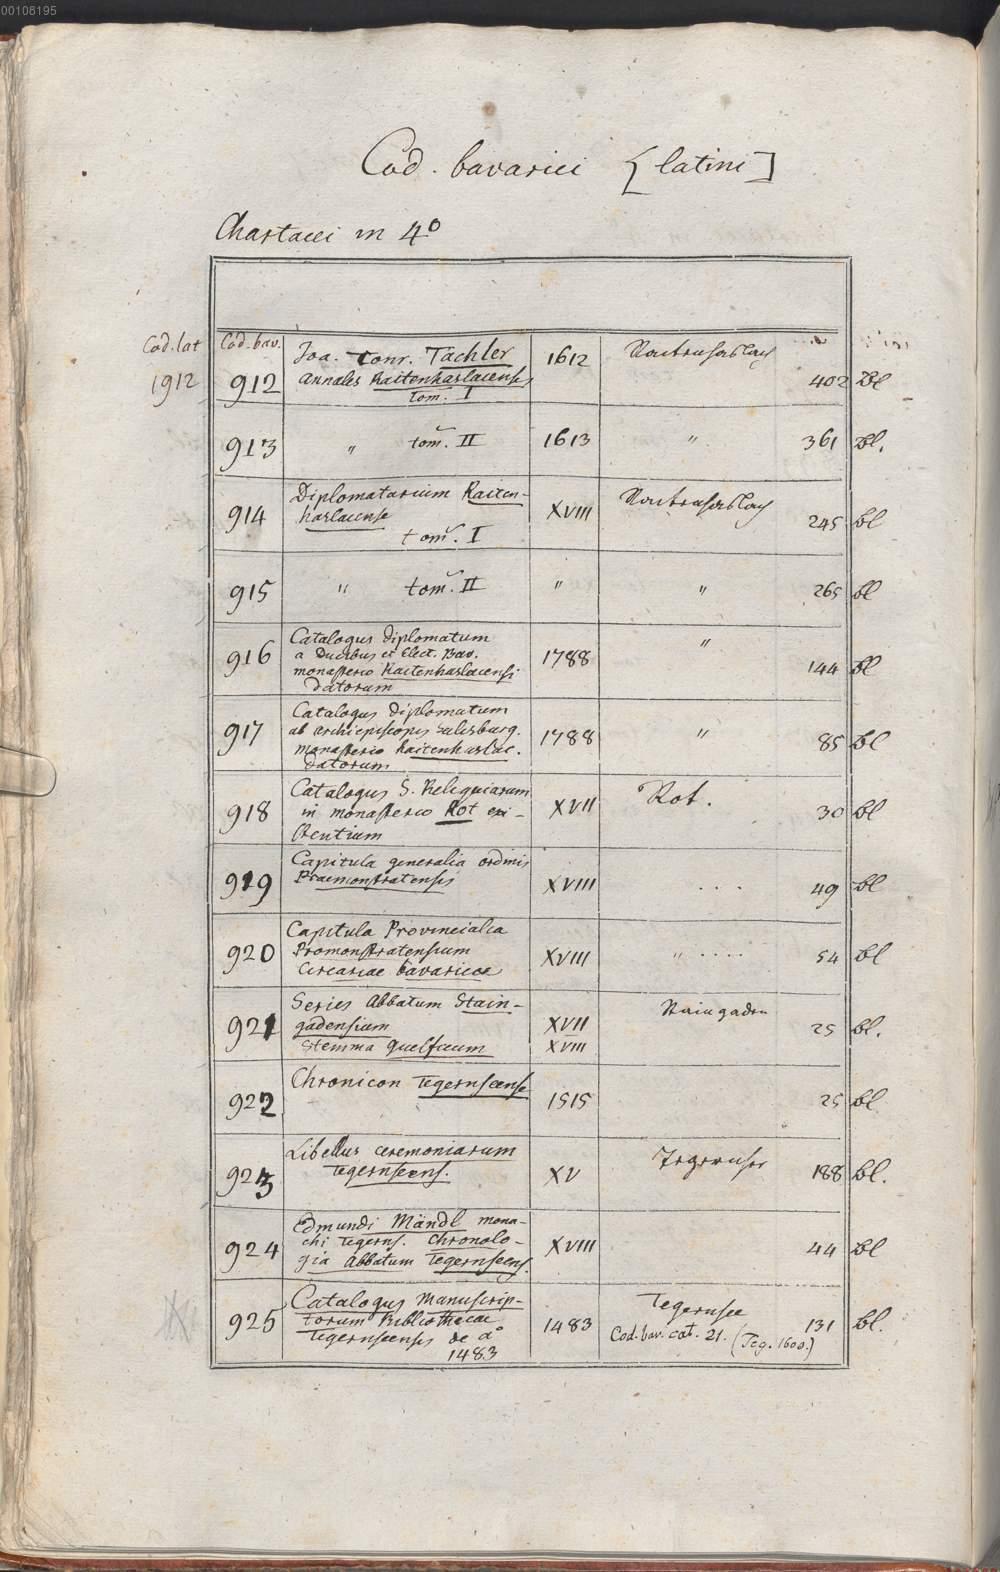 00108195
Cod. bavarici [latini]
Chartacei in 4º
Cod. lat
1912
Cod. bav.
912
Joa. Conr. Tachler
Annales Raitenhaslacenses
tom. I
1612
Raitenhaslach
402 Bl
913
" tom. II
1613
"
361 Bl.
914
Diplomatarium Raiten-
haslacense
tom. I
XVIII
Raitenhaslach
245 bl
915
" tom. II
"
"
265 bl
916
Catalogus diplomatum
a Ducibus et Elect. Bav.
monasterio Raitenhaslacensi
datorum
1788
"
144 Bl
917
Catalogus diplomatum
ab archiepiscopis Salisburg.
monasterio Raitenhaslac.
datorum
1788
"
85 bl
918
Catalogus S. Reliquiarum
in monasterio Rot exi-
stentium
XVII
Rot.
30 bl
919
Capitula generalia ordinis
Praemonstratensis
XVIII
. . .
49 bl
920
Capitula Provincialia
Promonstratensium
Circariae bavaricae
XVIII
" . . . .
54 bl
921
Series Abbatum Stain-
gadensium
Stemma Guelficum
XVII
XVIII
Staingaden
25 bl.
922
Chronicon Tegernseense
1515
25 bl
923
Libellus ceremoniarum
Tegernseens.
XV
Tegernsee
188 bl.
924
Edmundi Mändl mona-
chi Tegerns. Chronolo-
gia Abbatum Tegernseens.
XVIII
44 bl
925
Catalogus Manuscrip-
torum Bibliothecae
Tegernseensis de aº
1483
1483
Tegernsee
Cod. bav. cat. 21. (Teg. 1600.)
131 bl.